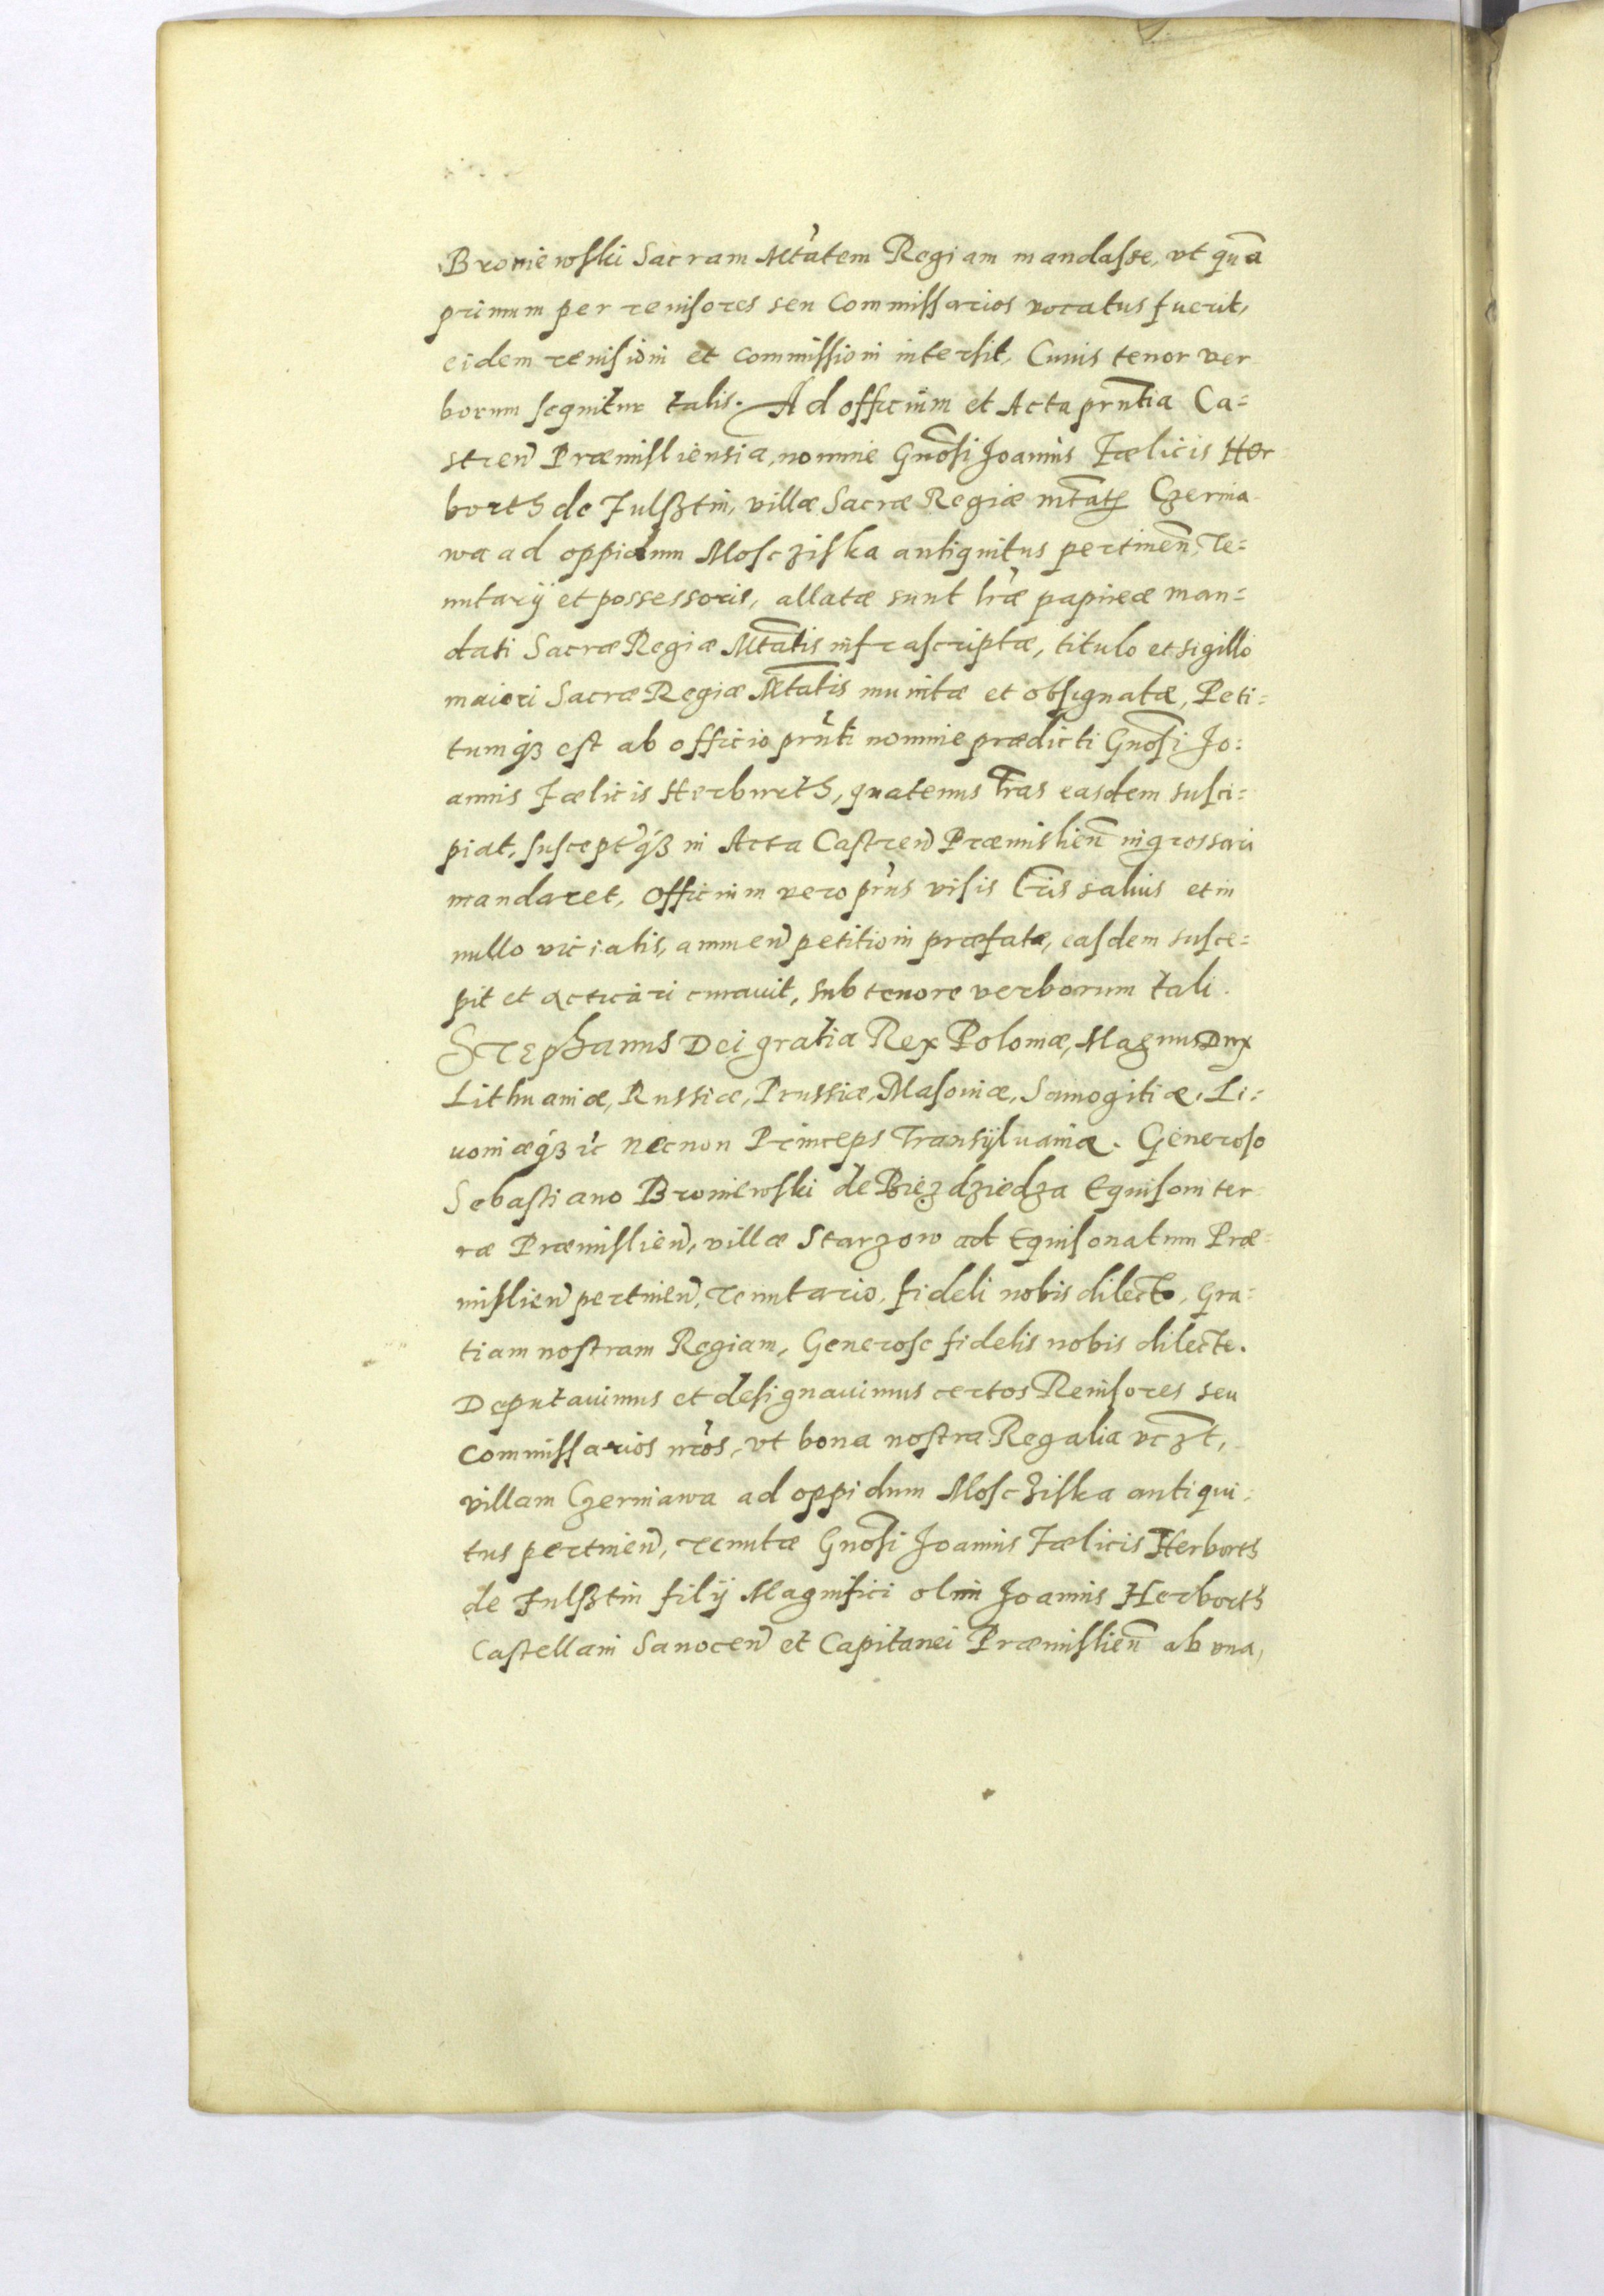 Broniewski Sacram Mtatem Regiam mandasse, vt qua
primum per reuisores seu Commissarios vocatus fuerit,
eidem reuisioni et commissioni intersit, Cuius tenor ver
borum sequitur talis. Ad officium et Acta prntia Ca=
stren Præmisliensia, nomine Gnosi Joannis Fælicis Her
borth de Fulsztin, villæ Sacræ Regiæ mtatis Czernia
wa ad oppidum Moscziska antiquitus pertinen, Te=
nutarij et possessoris, allatæ sunt lræ papireæ man=
dati Sacræ Regiæ Mtatis infrascriptæ, titulo et sigillo
maiori Sacræ Regiæ Mtatis munitæ et obsignatæ, Peti=
tumq3 est ab officio prnti nomine prædicti Gnosi Jo=
annis Fælicis Herburth, quatenus lras easdem susci=
piat, susceptq3 in Acta Castren Præmislien ingrossari
mandaret, Officium vero prns visis lris saluis et in
nullo viciatis, annuen petitioni præfatæ, easdem susce=
pit et acticari curauit, sub tenore verborum tali.
Stephanus Dei gratia Rex Poloniæ, Magnus Dux
Lithuaniæ, Russiæ, Prussiæ, Masouiæ, Samogitiæ, Li=
uoniæq3 ic necnon Princeps Transyluaniæ. Generoso
Sebastiano Broniewski de Biezdziedza Equisoni ter
ræ Præmislien, villæ Starzow ad Equisonatum Præ=
mislien pertinen, Tenutario, fideli nobis dilecto, Gra=
tiam nostram Regiam, Generose fidelis nobis dilecte.
Deputauimus et designauimus certos Reuisores seu
Commissarios nros, vt bona nostra Regalia vczt,
villam Czerniawa ad oppidum Mosczilska antiqui=
tus pertinen, tenutæ Gnosi Joannis Fælicis Herborth
de Fulsztin filij Magnifici olim Joannis Herborth
Castellani Sanocen et Capitanei Præmislien ab vna,